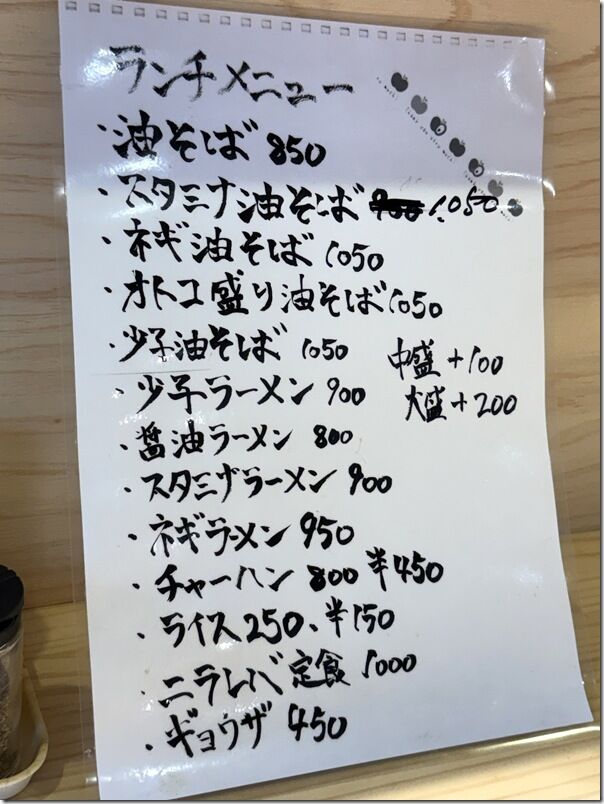 ランチメニュー
・油そば 850
・スタミナ油そば 900 1,050
・ネギ油そば 1050
・オトコ盛り油そば 1050
・少子油そば 1050
中盛+100
大盛+200
・少子ラーメン 900
・醤油ラーメン 800
・スタミナラーメン 900
・ネギラーメン 950
・チャーハン 800 半450
・ライス250、半150
・ニラレバ定食 1000
・ギョウザ 450